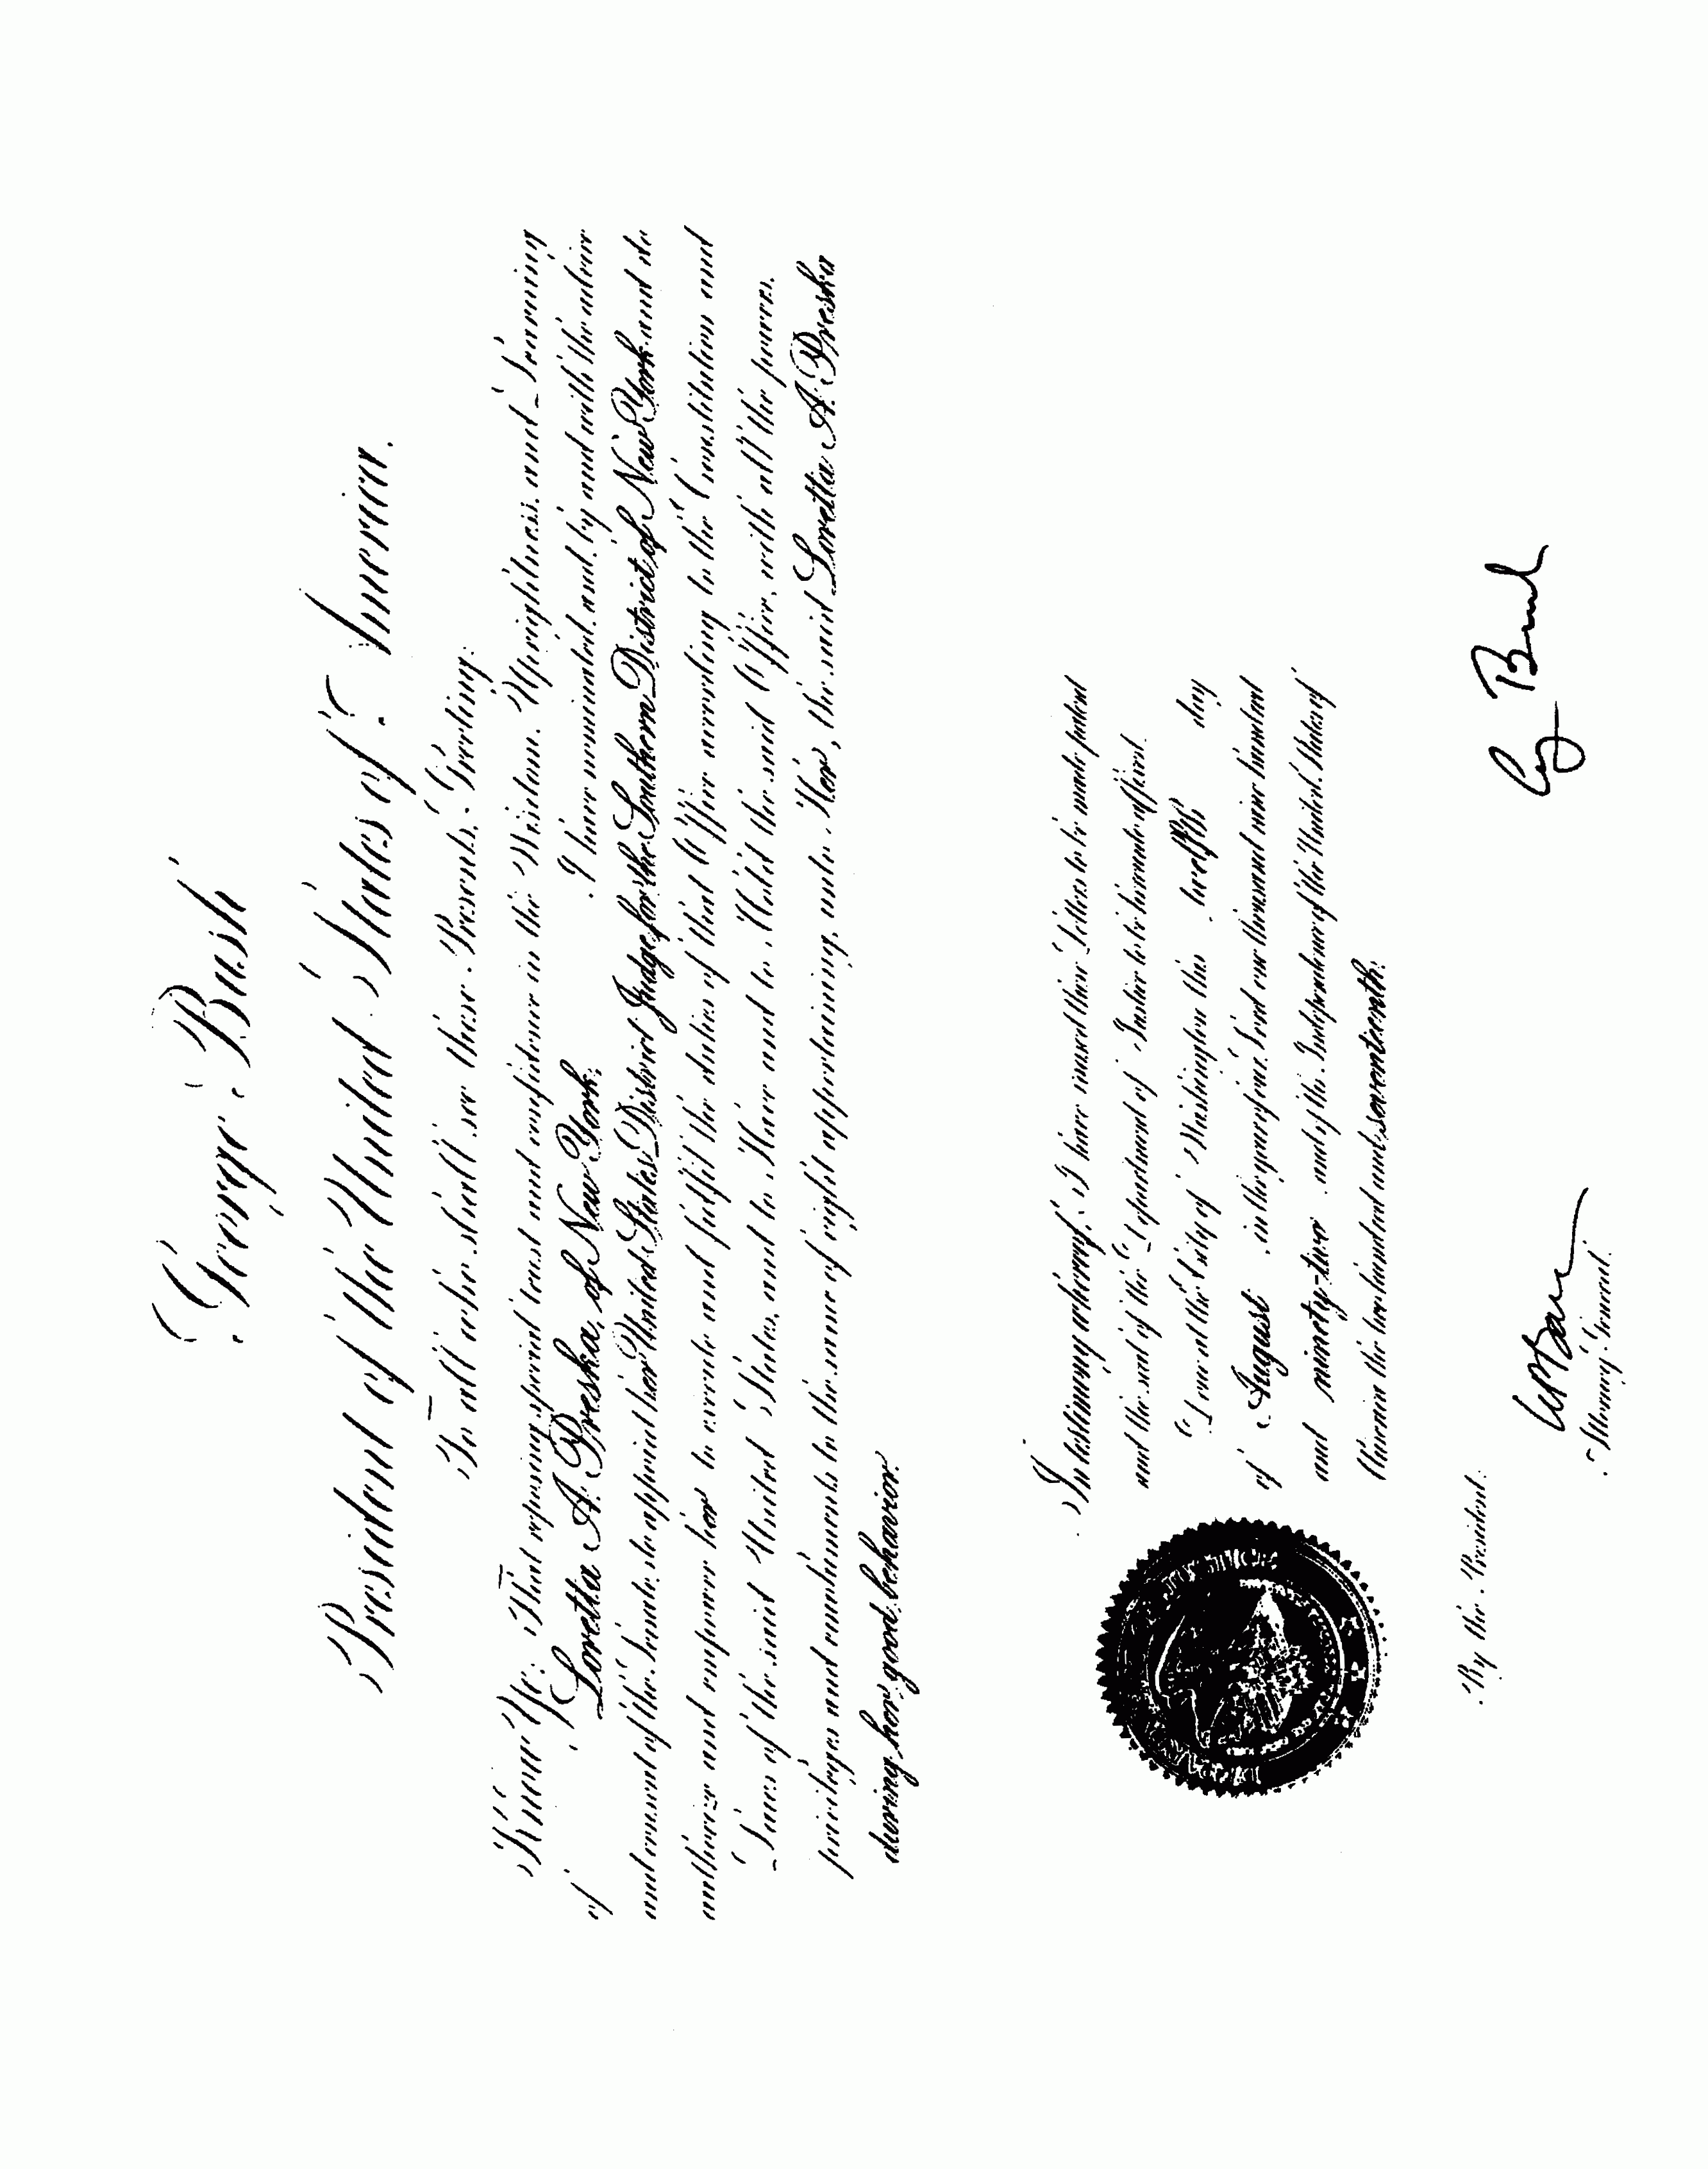 George Bush
President of the United States of America.
To all who shall see these Presents, Greeting:
Know Ye; That reposing special trust and confidence in the Wisdom, Uprightness, and Learning
of Loretta A. Preska, of New York, I have nominated, and, by and with the advice
and consent of the Senate, do appoint her United States District Judge for the Southern District of New York and do
authorize and empower her to execute and fulfil the duties of that Office according to the Constitution and
Laws of the said United States, and to Have and to Hold the said Office, with all the powers,
privileges and emoluments to the same of right appertaining, unto Her, the said Loretta A. Preska
during her good behavior.
In testimony whereof, I have caused these Letters to be made patent
and the seal of the Department of Justice to be hereunto affixed.
Done at the City of Washington this twelfth day
of August in the year of our Lord one thousand nine hundred
and ninety-two and of the Independence of the United States of
America the two hundred and seventeenth.
G Bush
By the President:
Attorney General.